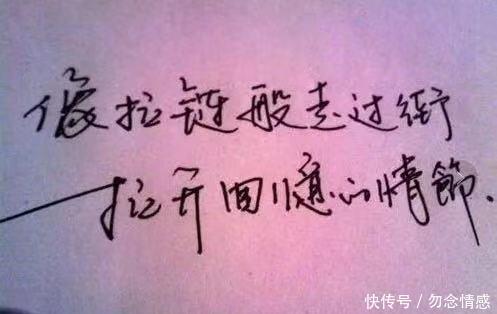 像拉链般走过街
——拉开回憶的情節.
快传号/勿念情感